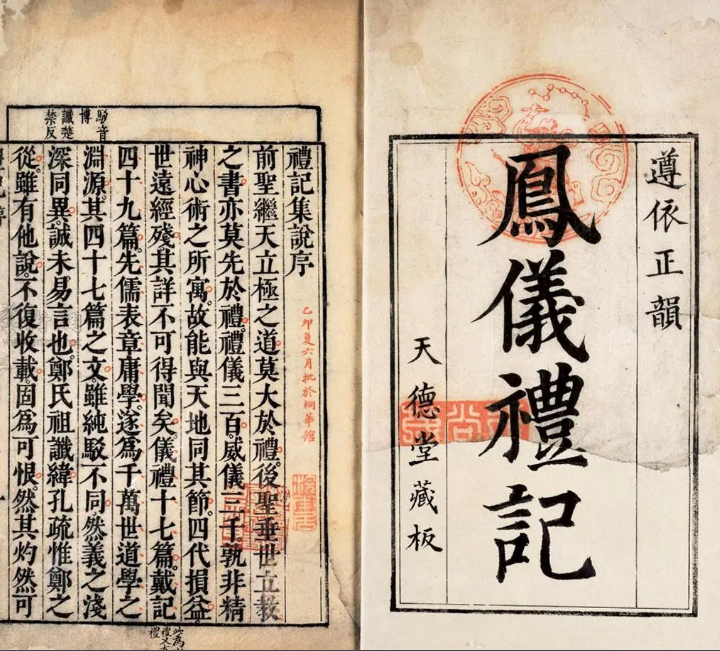 遵依正韻
鳳儀禮記
天德堂藏板
駁音
博
讖楚
禁反
禮記集說序
乙卯夏六月批於桐華館
前聖繼天立極之道莫大於禮。後聖垂世立教
之書亦莫先於禮。禮儀三百。威儀三千。孰非精
神心術之所寓。故能與天地同其節。四代損益
世遠經殘。其詳不可得聞矣。儀禮十七篇。戴記
四十九篇。先儒表章庸學。遂爲千萬世道學之
淵源。其四十七篇之文。雖純駁不同。然義之淺
深同異。誠未易言也。鄭氏祖讖緯。孔疏惟鄭之
從。雖有他說。不復收載。固爲可恨。然其灼然可